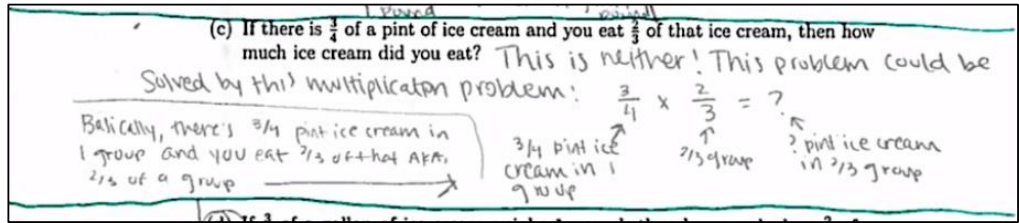 1 pound
(c) If there is 3/4 of a pint of ice cream and you eat 2/3 of that ice cream, then how
much ice cream did you eat? This is neither! This problem could be
Solved by this multiplicaton problem: 3/4 x 2/3 = ?
Basically, there's 3/4 pint ice cream in
1 group and you eat 2/3 of that AKA,
2/3 of a group
3/4 pint ice
cream in 1
group
2/3 group
? pint ice cream
in 2/3 group